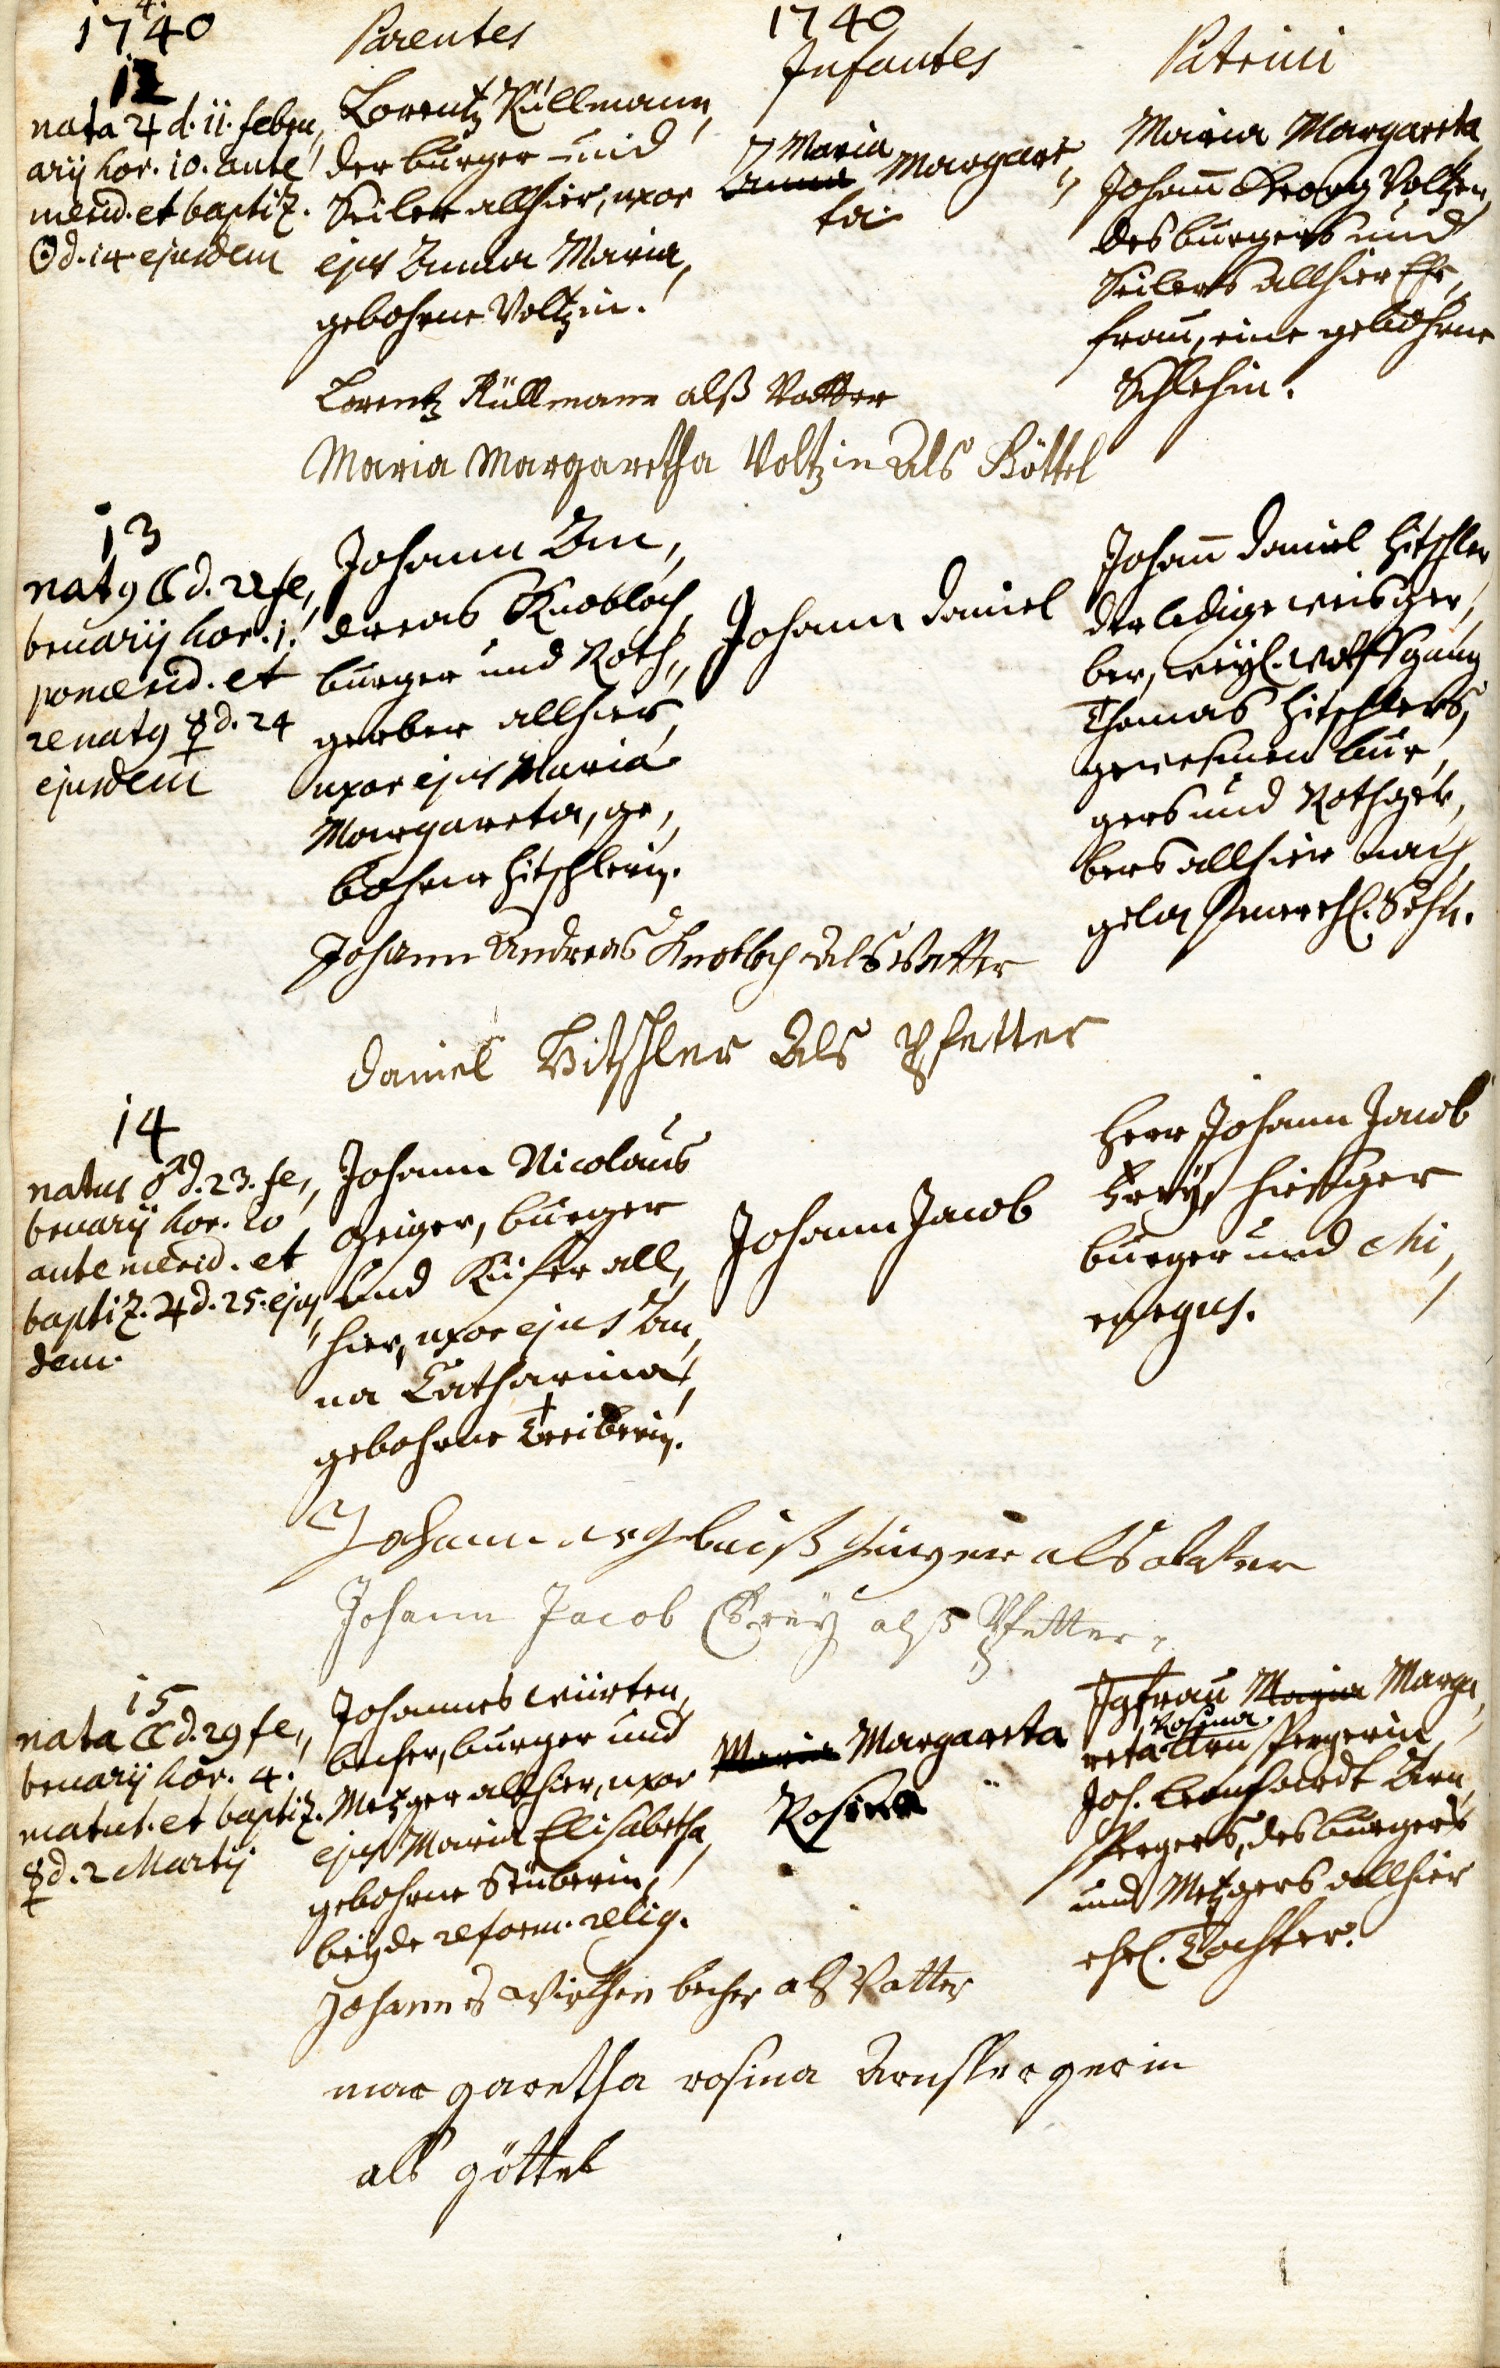 1740
Parentes
1740
Infantes
Patrini
12
nata ♃ d. 11. febru,
arij hor. 10. ante
merid. et baptiz.
☉ d. 14 ejusdem
Lorentz Küllmann,
der burger und
Seiler allhier, uxor
ejus Anna Maria,
gebohrne Voltzin.
Maria
Anna Margare,
ta
Maria Margareta
Johann Georg Voltzen,
des burgers und
Seilers allhier Ehe,
frau, eine gebohrne
Schlehin.
Lorentz Küllmann alß Vatter
Maria Margaretha Voltzin Als Göttel
13
natq ☾ d. 22 fe,
bruarij hor. 1.
pomerid. et
renatq ☿ d. 24
ejusdem
Johann An,
dreas Knobloch,
burger und Roth,
gerber allhier,
uxor ejus Maria
Margareta, ge,
bohrne Hitschlerin.
Johann Daniel
Johann Daniel Hitschler
der ledige weisger,
ber, weyl. Wolffgang
Thomas Hitschlers,
gewesenen bur,
gers und Rothger,
bers allhier nach
gelassener ehl. Sohn.
Johann Andreas Knobloch als Vatter
Daniel Hitschler Als Pfetter
14
natus ♂ d. 23. fe,
bruarij hor. 10
ante merid. et
baptiz. ♃ d. 25. ejus
dem.
Johann Nicolaus
Geiger, burger
und Küfer all,
hier, uxor ejus An,
na Catharina,
gebohrne Treiberin.
Johann Jacob
Herr Johann Jacob
Frey, hiesiger
burger und Chi,
rurgus.
Johann als Vatter
Johann Jacob Frey alß Pfetter
15
nata ☾ d. 29 fe,
bruarij hor. 4.
matut. et baptiz.
☿ d. 2 Martij
Johannes Würten,
becher, burger und
Metzger allhier, uxor
ejus Maria Elisabetha,
gebohrne Stüberin,
beÿde reform. relig.
Maria Margareta
Rosina
Jgfrau Maria Marga,
Rosina
reta Arnspergerin
Joh. Leonhardt Arn,
spergers, des burgers
und Metzgers allhier
ehel. Tochter.
Johannes Wirthen becher als Vatter
margaretha rosina Arnspergerin
als göttel